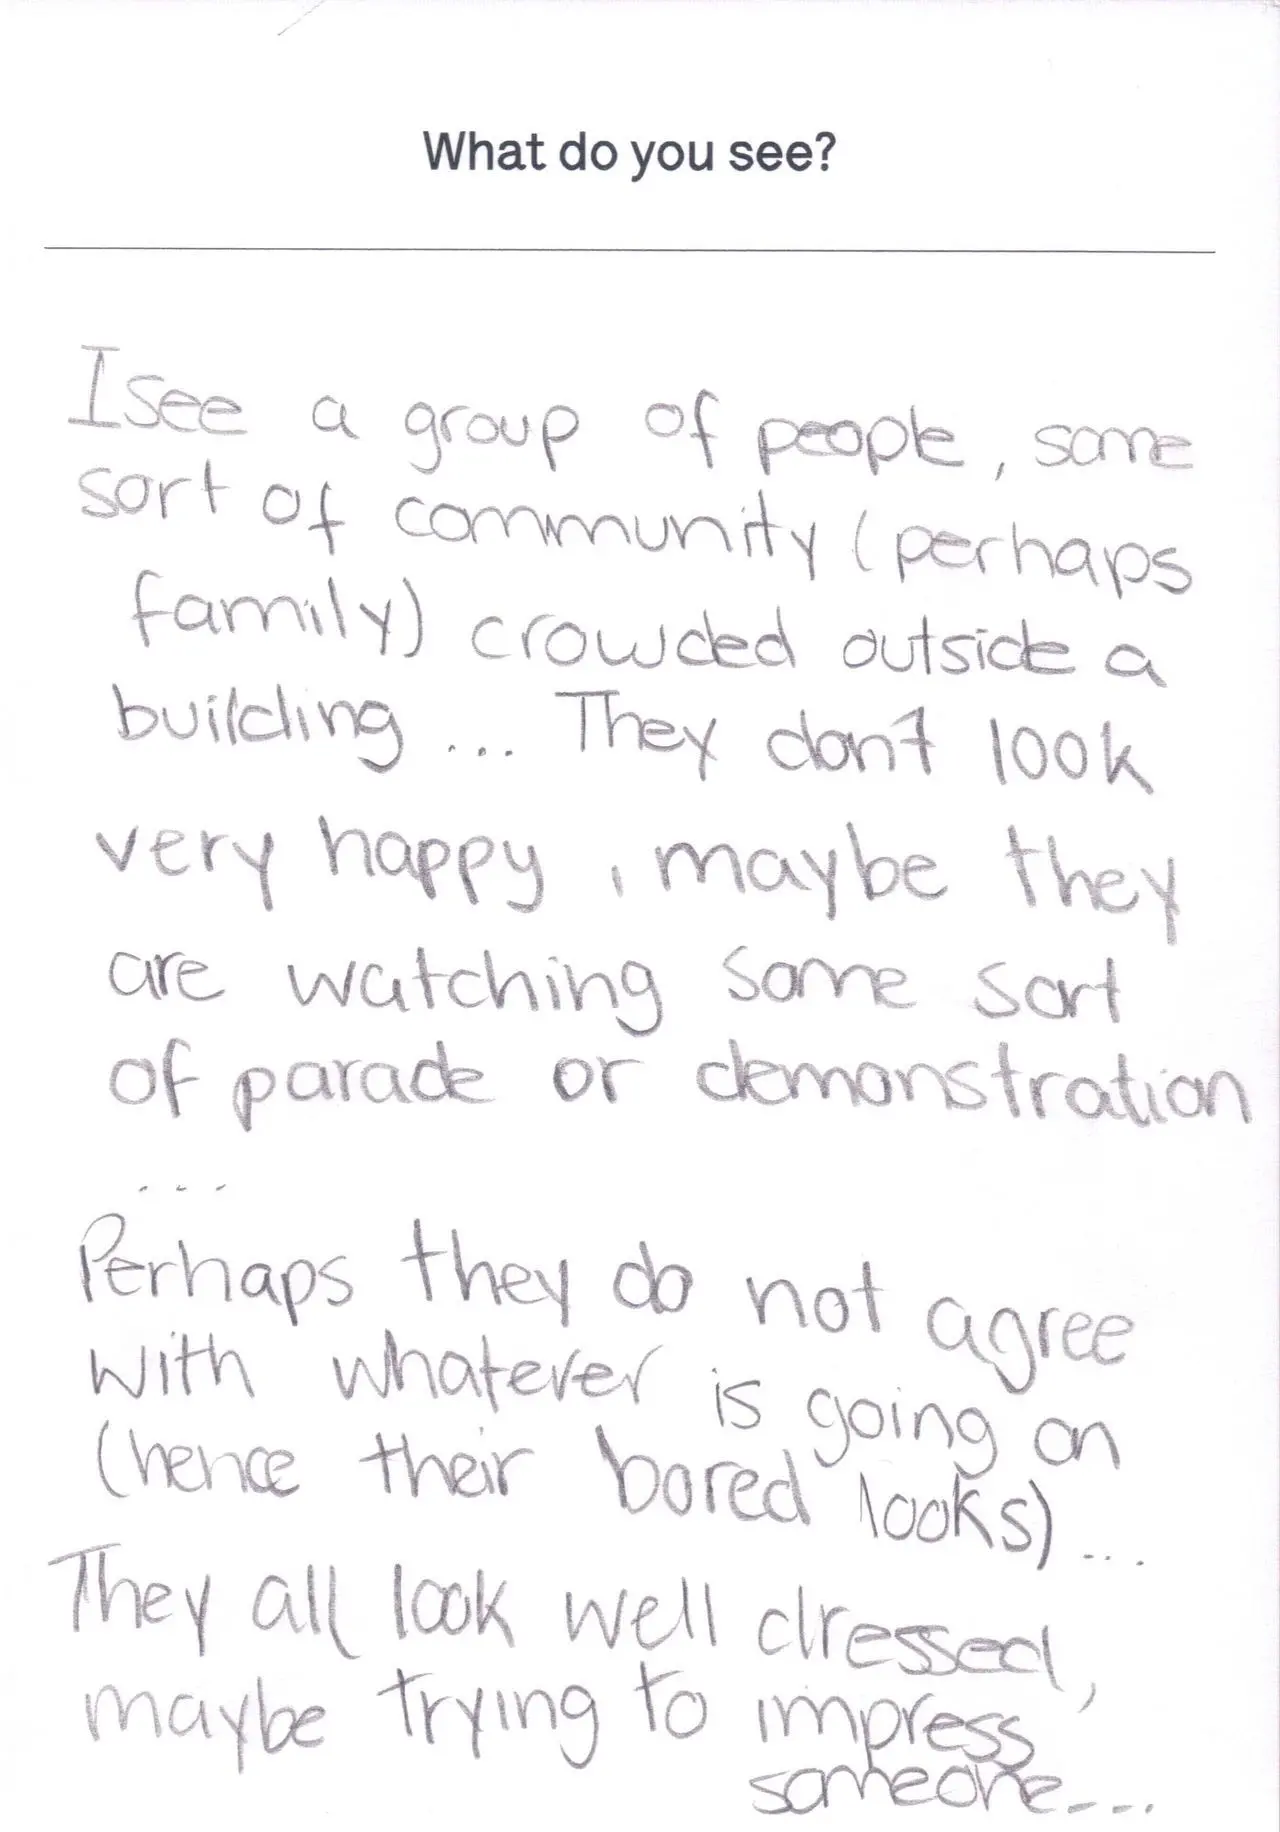 What do you see?
I see a group of people, some
sort of community (perhaps
family) crowded outside a
building ... They don't look
very happy, maybe they
are watching some sort
of parade or demonstration
....
Perhaps they do not agree
with whatever is going on
(hence their bored looks)...
They all look well dressed,
maybe trying to impress
someone....